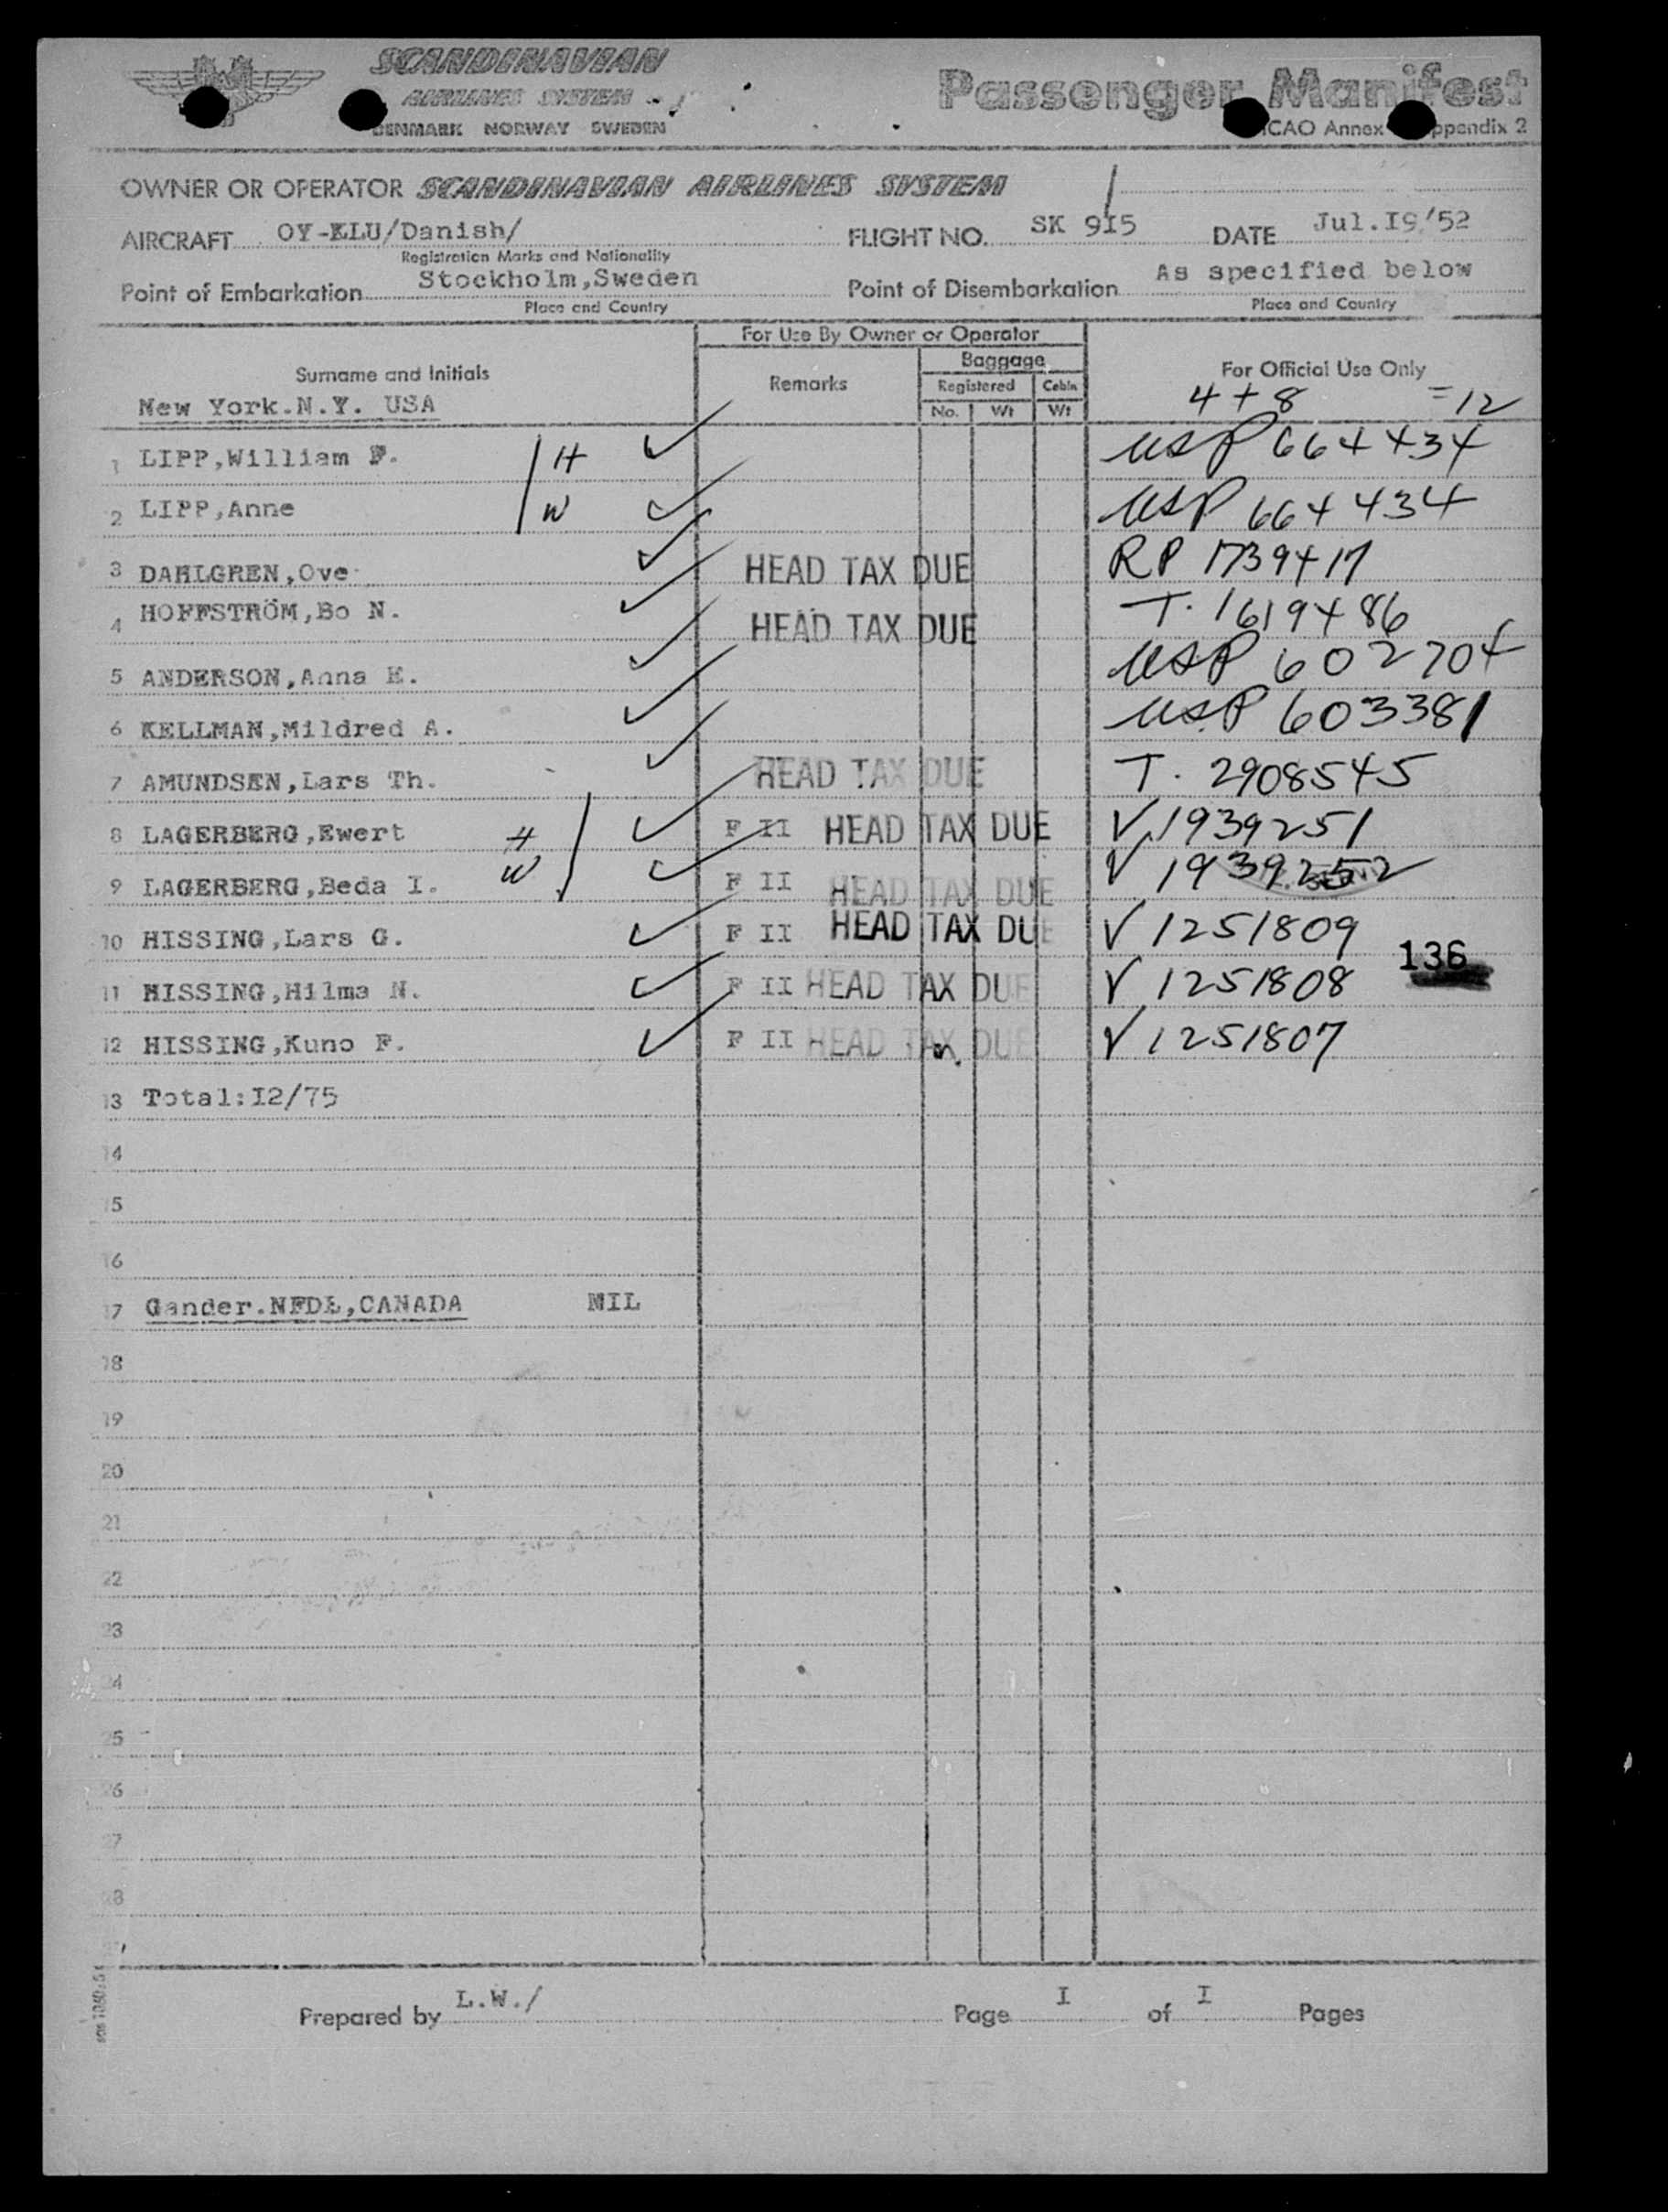 SCANDINAVIAN
AIRLINES SYSTEM
DENMARK NORWAY SWEDEN
Passenger Manifest
ICAO Annex Appendix 2
OWNER OR OPERATOR SCANDINAVIAN AIRLINES SYSTEM
AIRCRAFT OY-KLU/Danish/ FLIGHT NO. SK 9I5 DATE Jul.I9.'52
Registration Marks and Nationality
Point of Embarkation Stockholm,Sweden Point of Disembarkation As specified below
Place and Country Place and Country
For Use By Owner or Operator
Surname and Initials Remarks Baggage For Official Use Only
Registered Cabin
No. Wt Wt
New York.N.Y. USA 4 + 8 = 12
1 LIPP,William F. H USP 664434
2 LIPP,Anne W USP 664434
3 DAHLGREN,Ove HEAD TAX DUE RP 1739417
4 HOFFSTRÖM,Bo N. HEAD TAX DUE T. 1619486
5 ANDERSON,Anna E. USP 602704
6 KELLMAN,Mildred A. USP 603381
7 AMUNDSEN,Lars Th. HEAD TAX DUE T. 2908545
8 LAGERBERG,Ewert H F II HEAD TAX DUE V 1939251
9 LAGERBERG,Beda I. W F II HEAD TAX DUE V 1939252
10 HISSING,Lars G. F II HEAD TAX DUE V 1251809
136
11 HISSING,Hilma N. F II HEAD TAX DUE V 1251808
12 HISSING,Kuno F. F II HEAD TAX DUE V 1251807
13 Total:I2/75
14
15
16
17 Gander.NFDL,CANADA NIL
18
19
20
21
22
23
24
25
26
27
28
Prepared by L.W./ Page I of I Pages